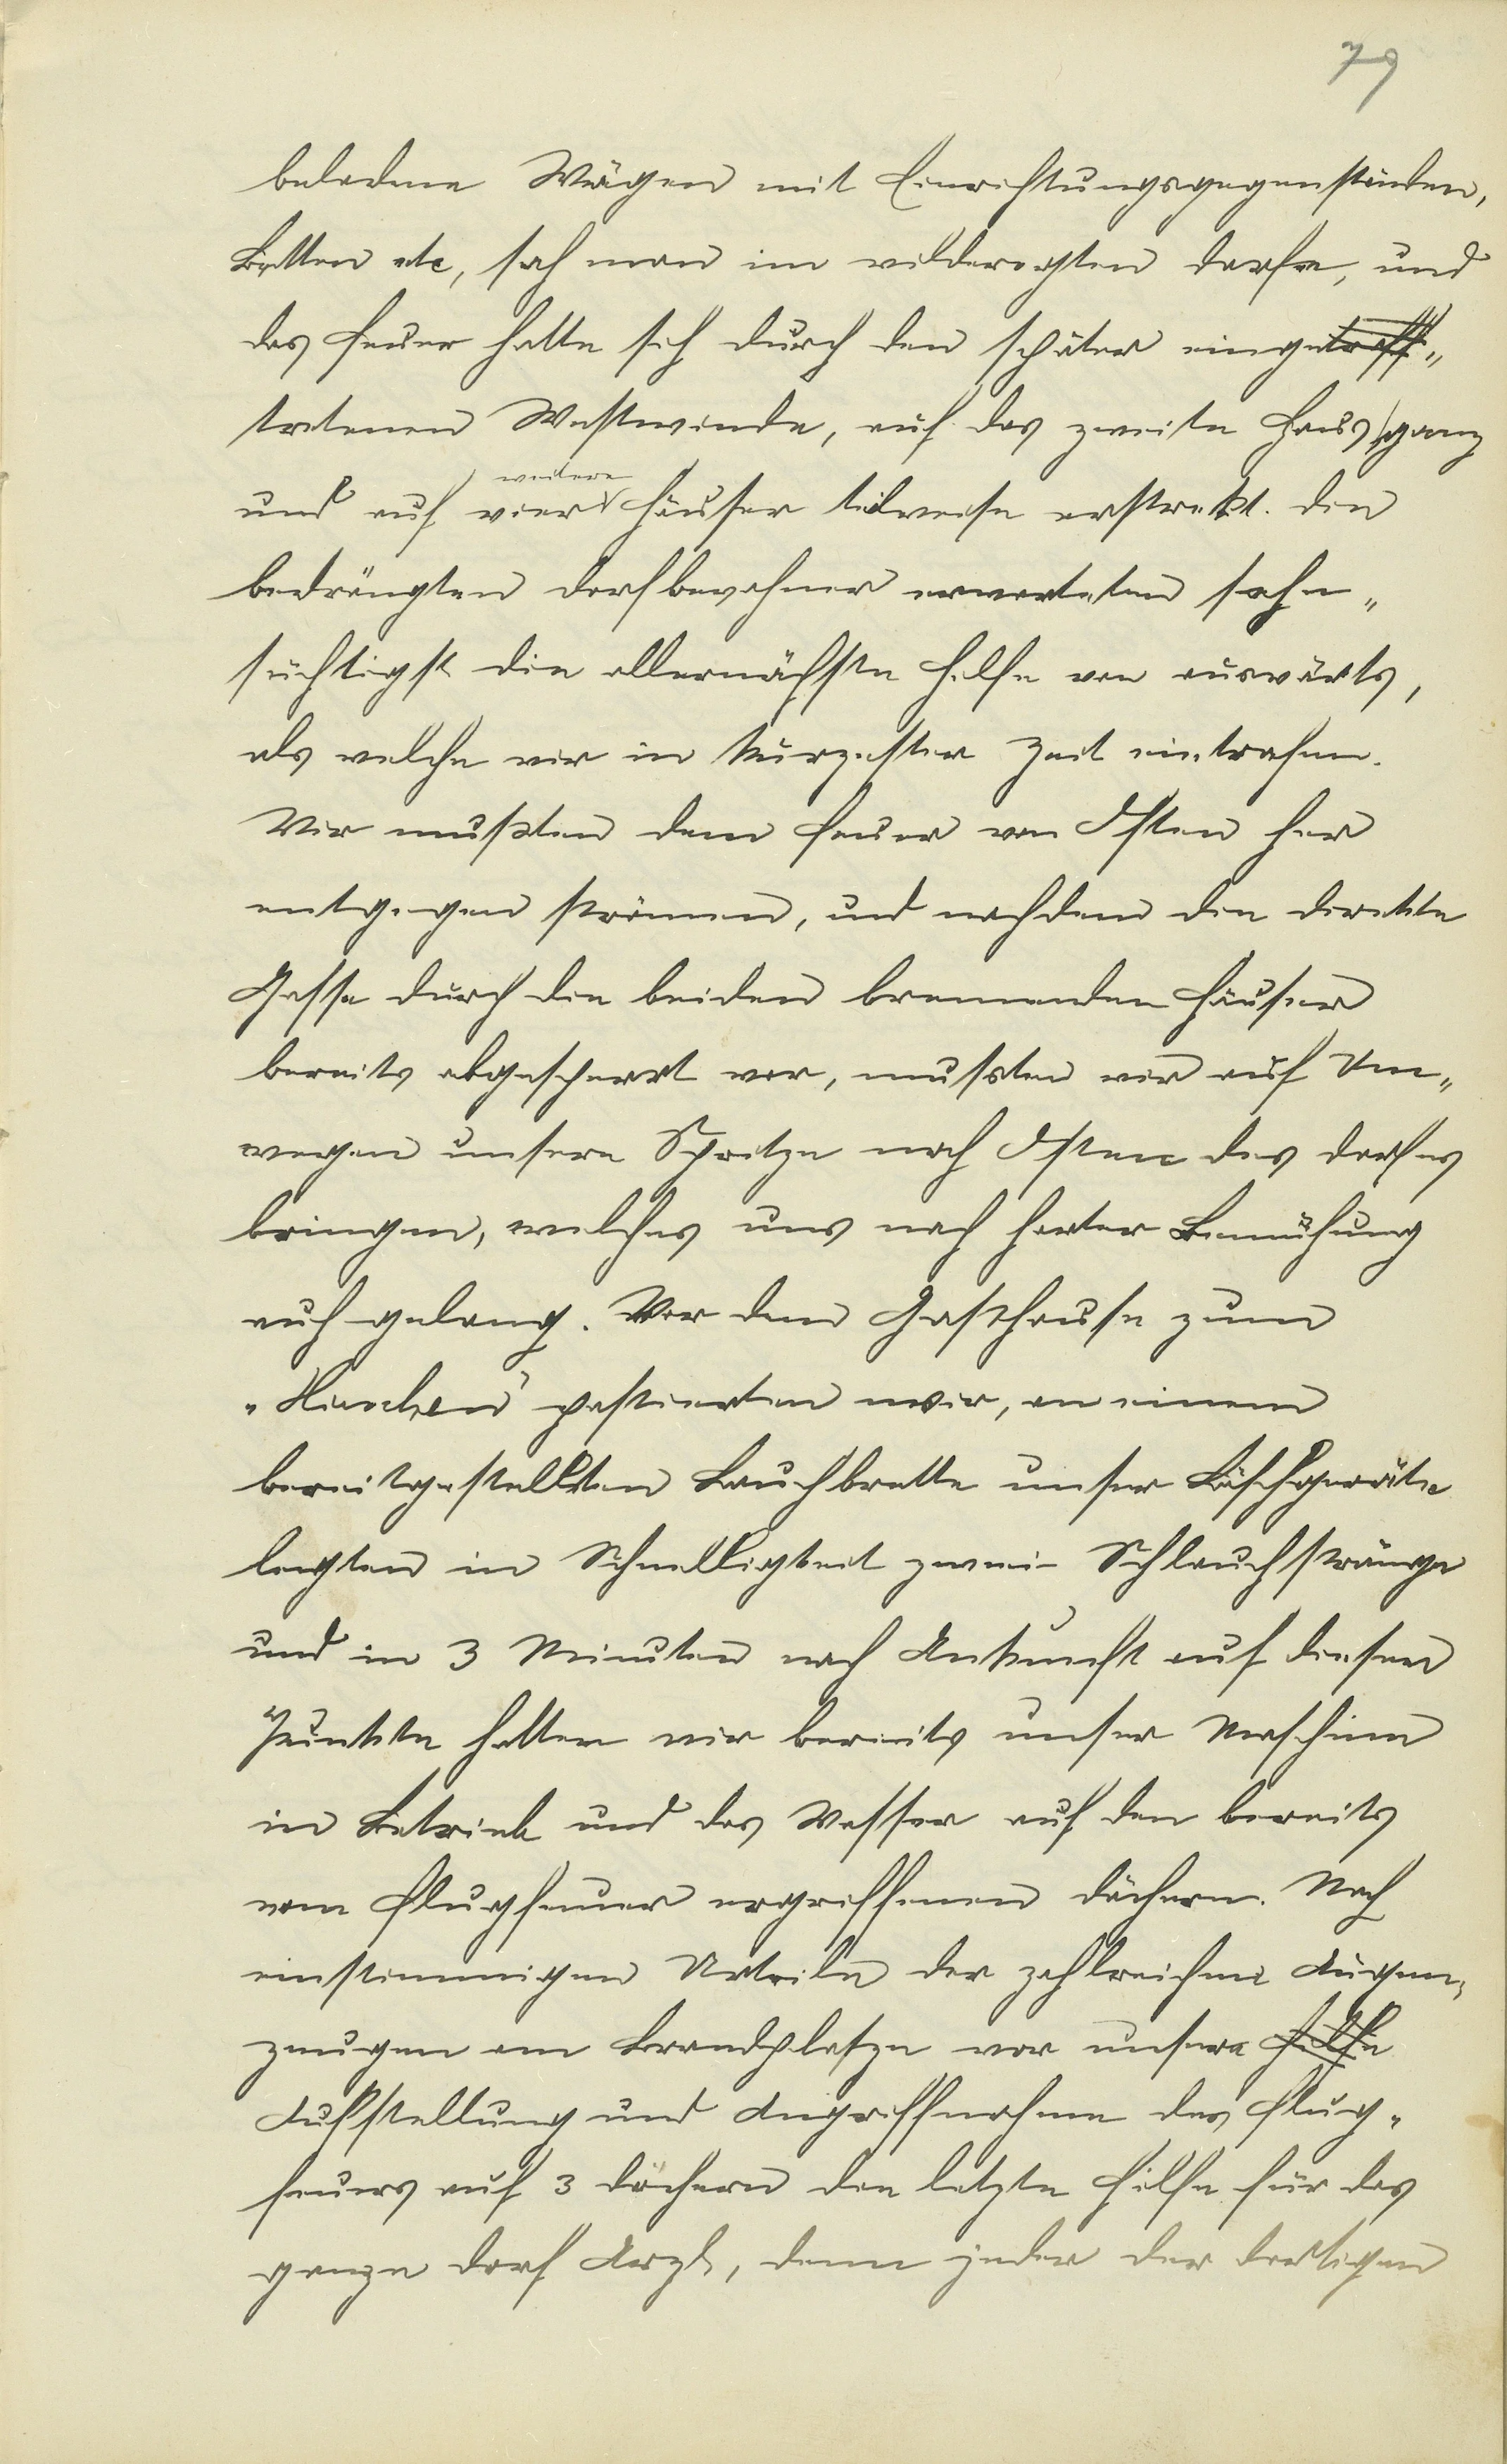 79
beladene Wägen mit Einrichtungsgegenständen,
Betten etc, sah man im wilderegten Dorfe, und
das Feuer hatte sich durch den später eingetroff„
tretenen Westwinde, auf das zweite Haus ganz
weitere
und auf vier Häuser teilweise erstrekt. Die
bedrängten Dorfbewohner erwarteten sehn„
süchtigst die allernächste Hilfe von auswärts,
als welche wir in kurzester Zeit eintrafen.
Wir mußten dem Feuer von Osten her
entgegen strömen, und nachdem die direkte
Gasse durch die beiden brennenden Häuser
bereits abgesperrt war, mussten wir auf Um„
wegen unsere Spritze nach Osten des Dorfes
bringen, welches uns nach harter Bemühung
auch gelang. Vor dem Gasthause zum
„Hirschen" postierten wir, an einem
bereitgestellten unser Löschgeräte
legten in Schnelligkeit zwei Schlauchstränge
und in 3 Minuten nach Ankunft auf diesem
Punkte hatten wir bereits unser Maschine
in Betrieb und das Wasser auf den bereits
vom Flugfeuer ergriffenen Dächern. Nach
einstimmigen Urteile der zahlreichen Augen„
zeugen am Brandplatze war unsere Hilfe
Aufstellung und Angriffnahme des Flug„
feuers auf 3 Dächern die letzte Hilfe für das
ganze Dorf Arzl, denn jeder der dortigen